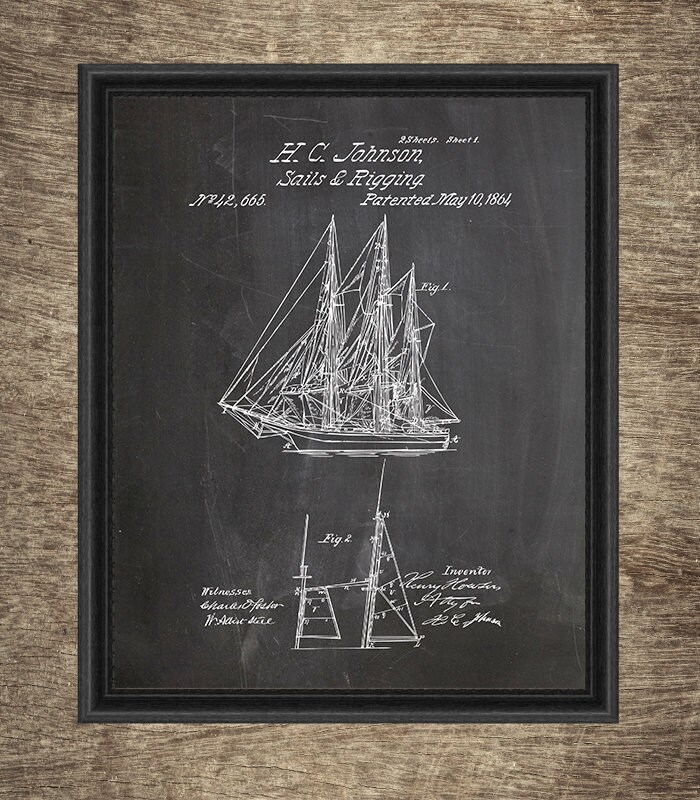 2 Sheets. Sheet 1.
H. C. Johnson,
Sails & Rigging.
Nº 42,665.
Patented May 10, 1864
Fig. 1.
Fig. 2.
Inventor
Henry
Witnesses
Charles D. Foster
W. Albert Steel
H C Johnson